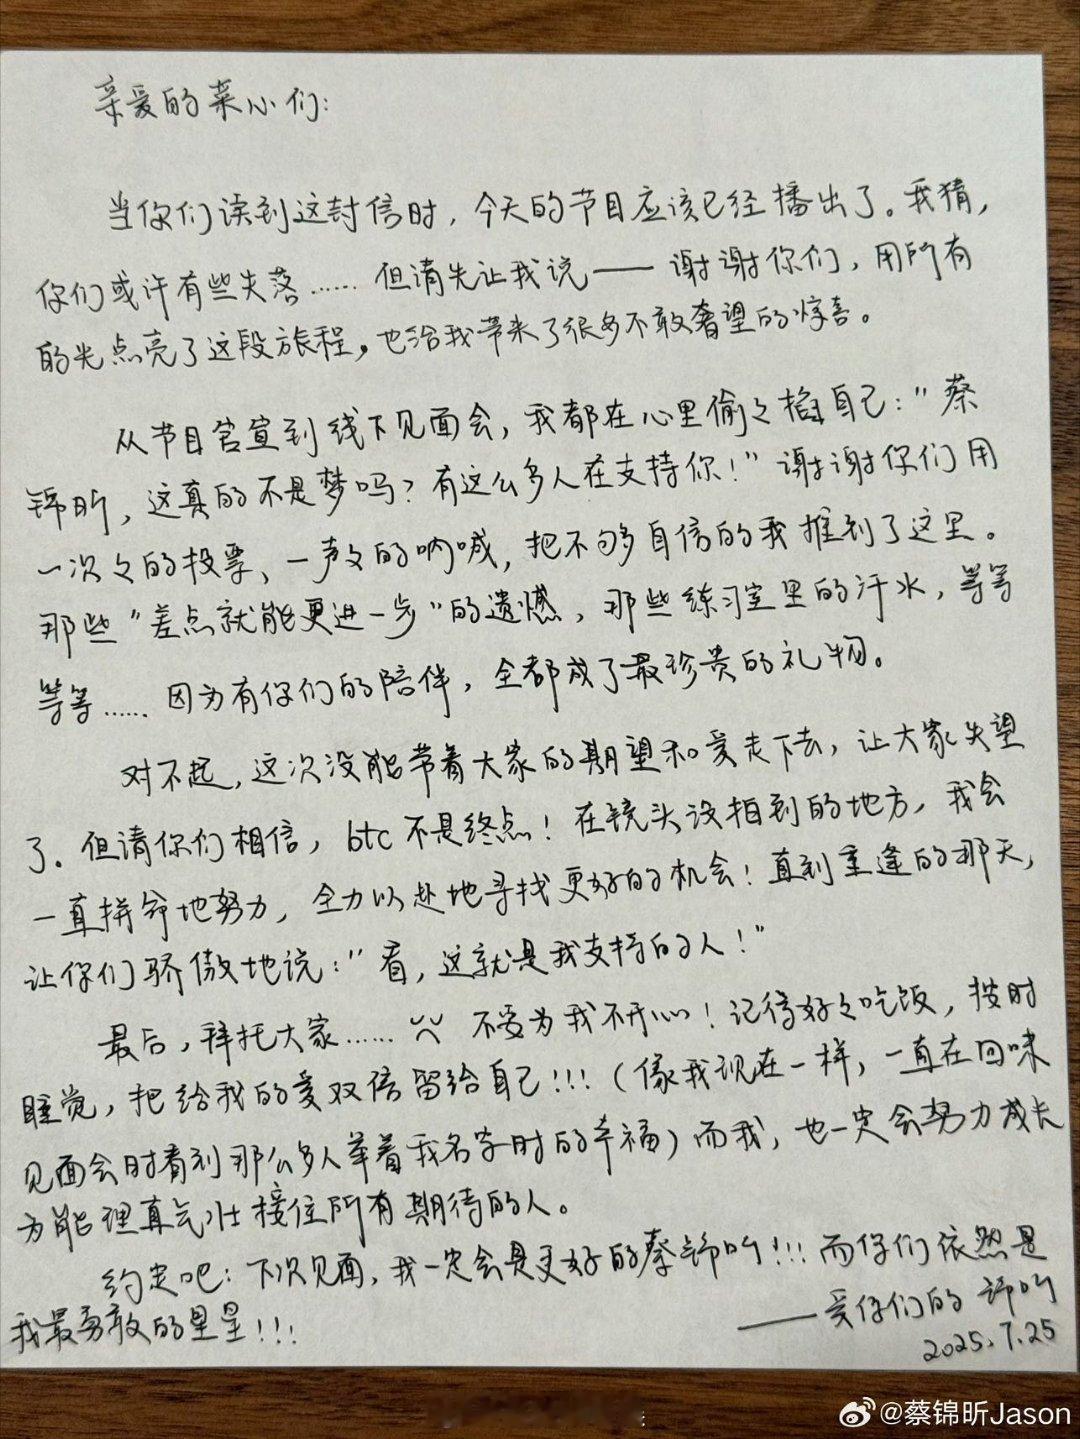 亲爱的菜心们:
当你们读到这封信时,今天的节目应该已经播出了。我猜,
你们或许有些失落……但请先让我说——谢谢你们,用所有
的光点亮了这段旅程,也给我带来了很多不敢奢望的惊喜。
从节目官宣到线下见面会,我都在心里偷々掐自己:"蔡
锦昕,这真的不是梦吗?有这么多人在支持你!"谢谢你们用
一次々的投票、一声々的呐喊,把不够自信的我推到了这里。
那些"差点就能更进一步"的遗憾,那些练习室里的汗水,等等
等等……因为有你们的陪伴,全都成了最珍贵的礼物。
对不起,这次没能带着大家的期望和爱走下去,让大家失望
了.但请你们相信,btc不是终点!在镜头没拍到的地方,我会
一直拼命地努力,全力以赴地寻找更好的机会!直到重逢的那天,
让你们骄傲地说:"看,这就是我支持的人!"
最后,拜托大家……不要为我不开心!记得好々吃饭,按时
睡觉,把给我的爱双倍留给自己!!!(像我现在一样,一直在回味
见面会时看到那么多人举着我名字时的幸福)而我,也一定会努力成长
为能理直气壮接住所有期待的人。
约定吧:下次见面,我一定会是更好的蔡锦昕!!!而你们依然是
我最勇敢的星星!!!
——爱你们的锦昕
2025.7.25
@蔡锦昕Jason